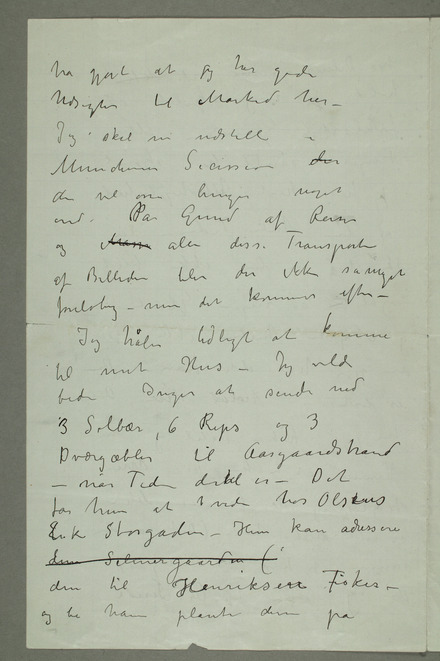 ha gjort at jeg har gode
Udsigter til Marked her –
Jeg skal nu udstille i
Münchener Secession der
der vil om
end. Paa Grund af Reiser
og Masse alle disse Transporter
af Billeder blir der ikke saa meget
foreløbig – men det kommer efter –
Jeg håber tidligt at komme
til mit Hus – Jeg vilde
bede Inger at sende ned
3 Solbær, 6 Reps og 3
Dværgæbler til Aasgaardstrand
– når Tiden dertil er – Det
far hun at vide hos Olsens
Enke Storgaden – Hun kan adressere
dem til Henriksen Fisker –
og be ham plante dem på